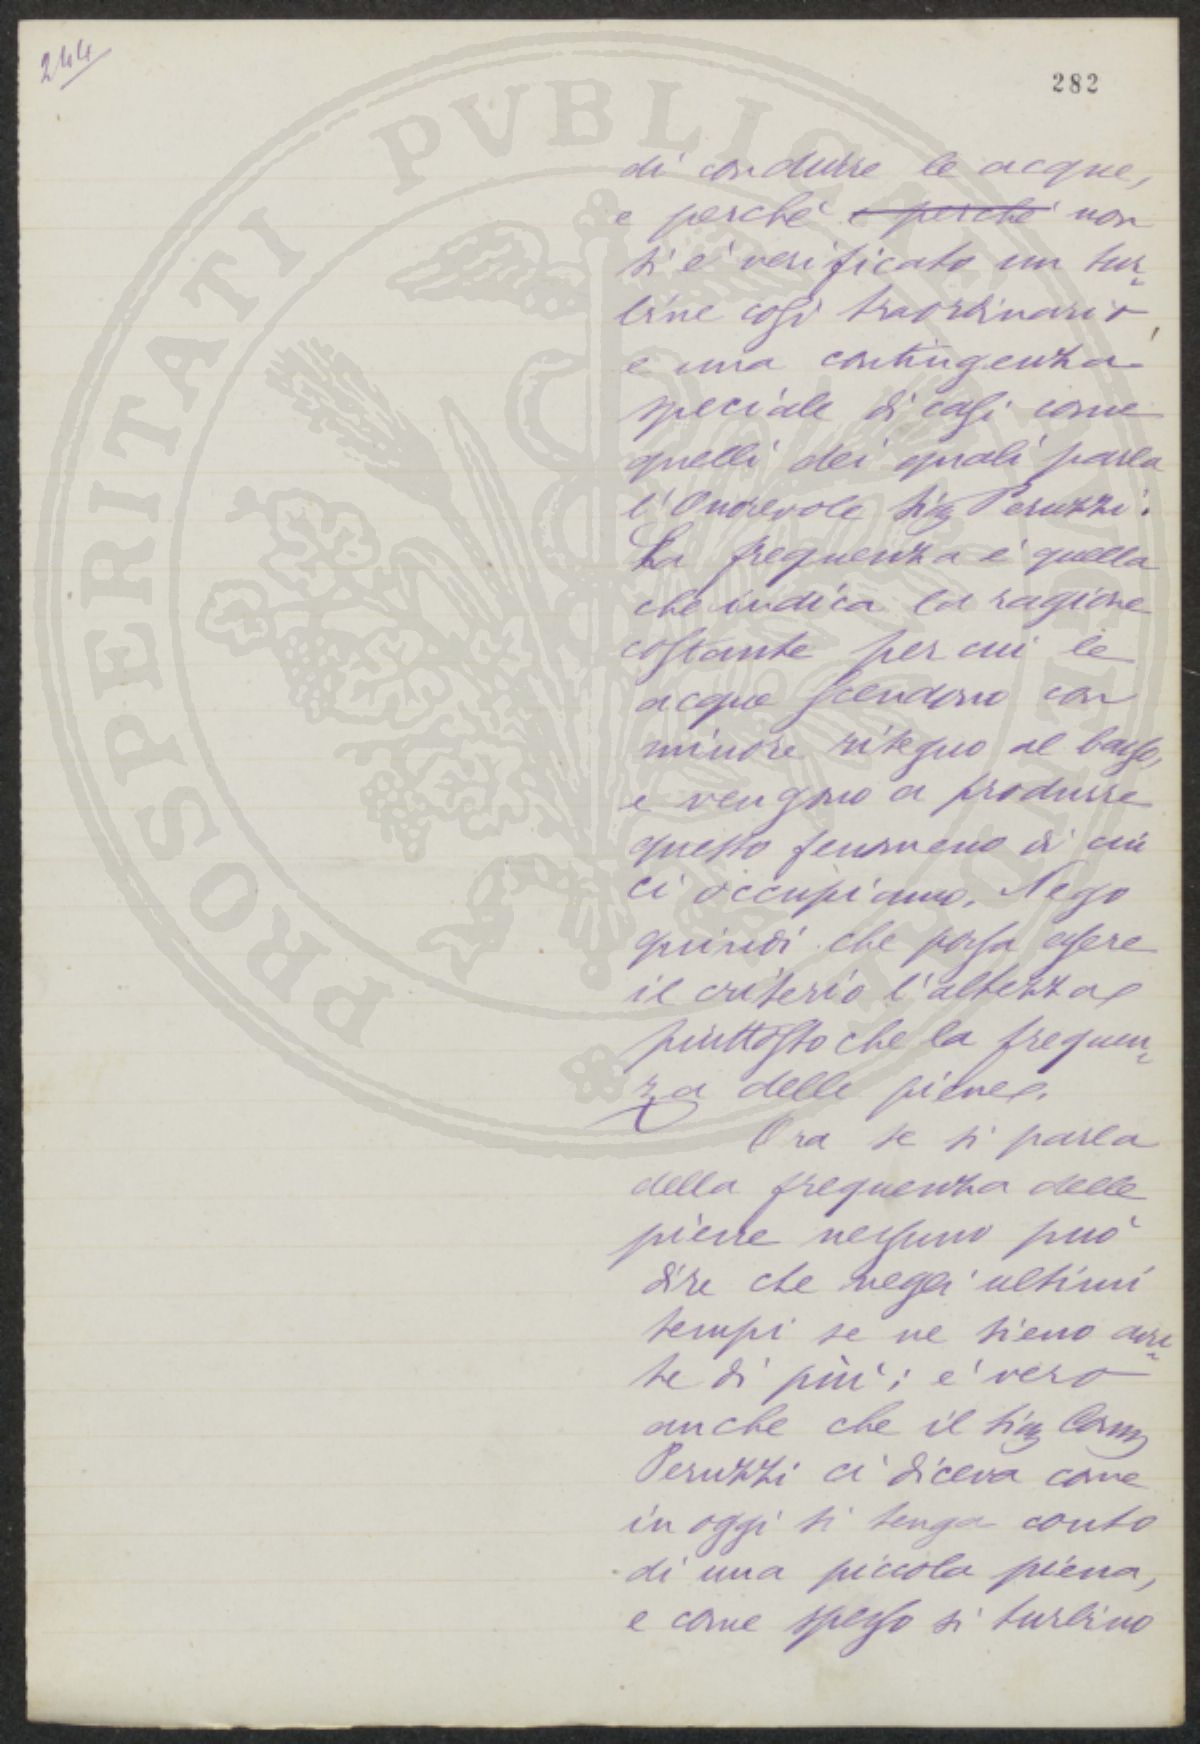 244
282
di condurre le acque,
e perché e perché non
si è verificato un tur=
bine così traordinario,
e una contingenza
speciale di casi come
quelli dei quali parla
l'Onorevole Sig Peruzzi.
La frequenza è quella
che indica la ragione
costante per cui le
acque scendono con
minore ritegno al basso,
e vengono a produrre
questo fenomeno di cui
ci occupiamo. Nego
quindi che possa essere
il criterio l'altezza
piuttosto che la frequen=
za delle piene.
Ora se si parla
della frequenza delle
piene nessuno può
dire che negli ultimi
tempi se ne sieno avu=
te di più; è vero
anche che il Sig Comm
Peruzzi ci diceva come
in oggi si tenga conto
di una piccola piena,
e come spesso si turbino
PROSPERITATI PVBLICAE